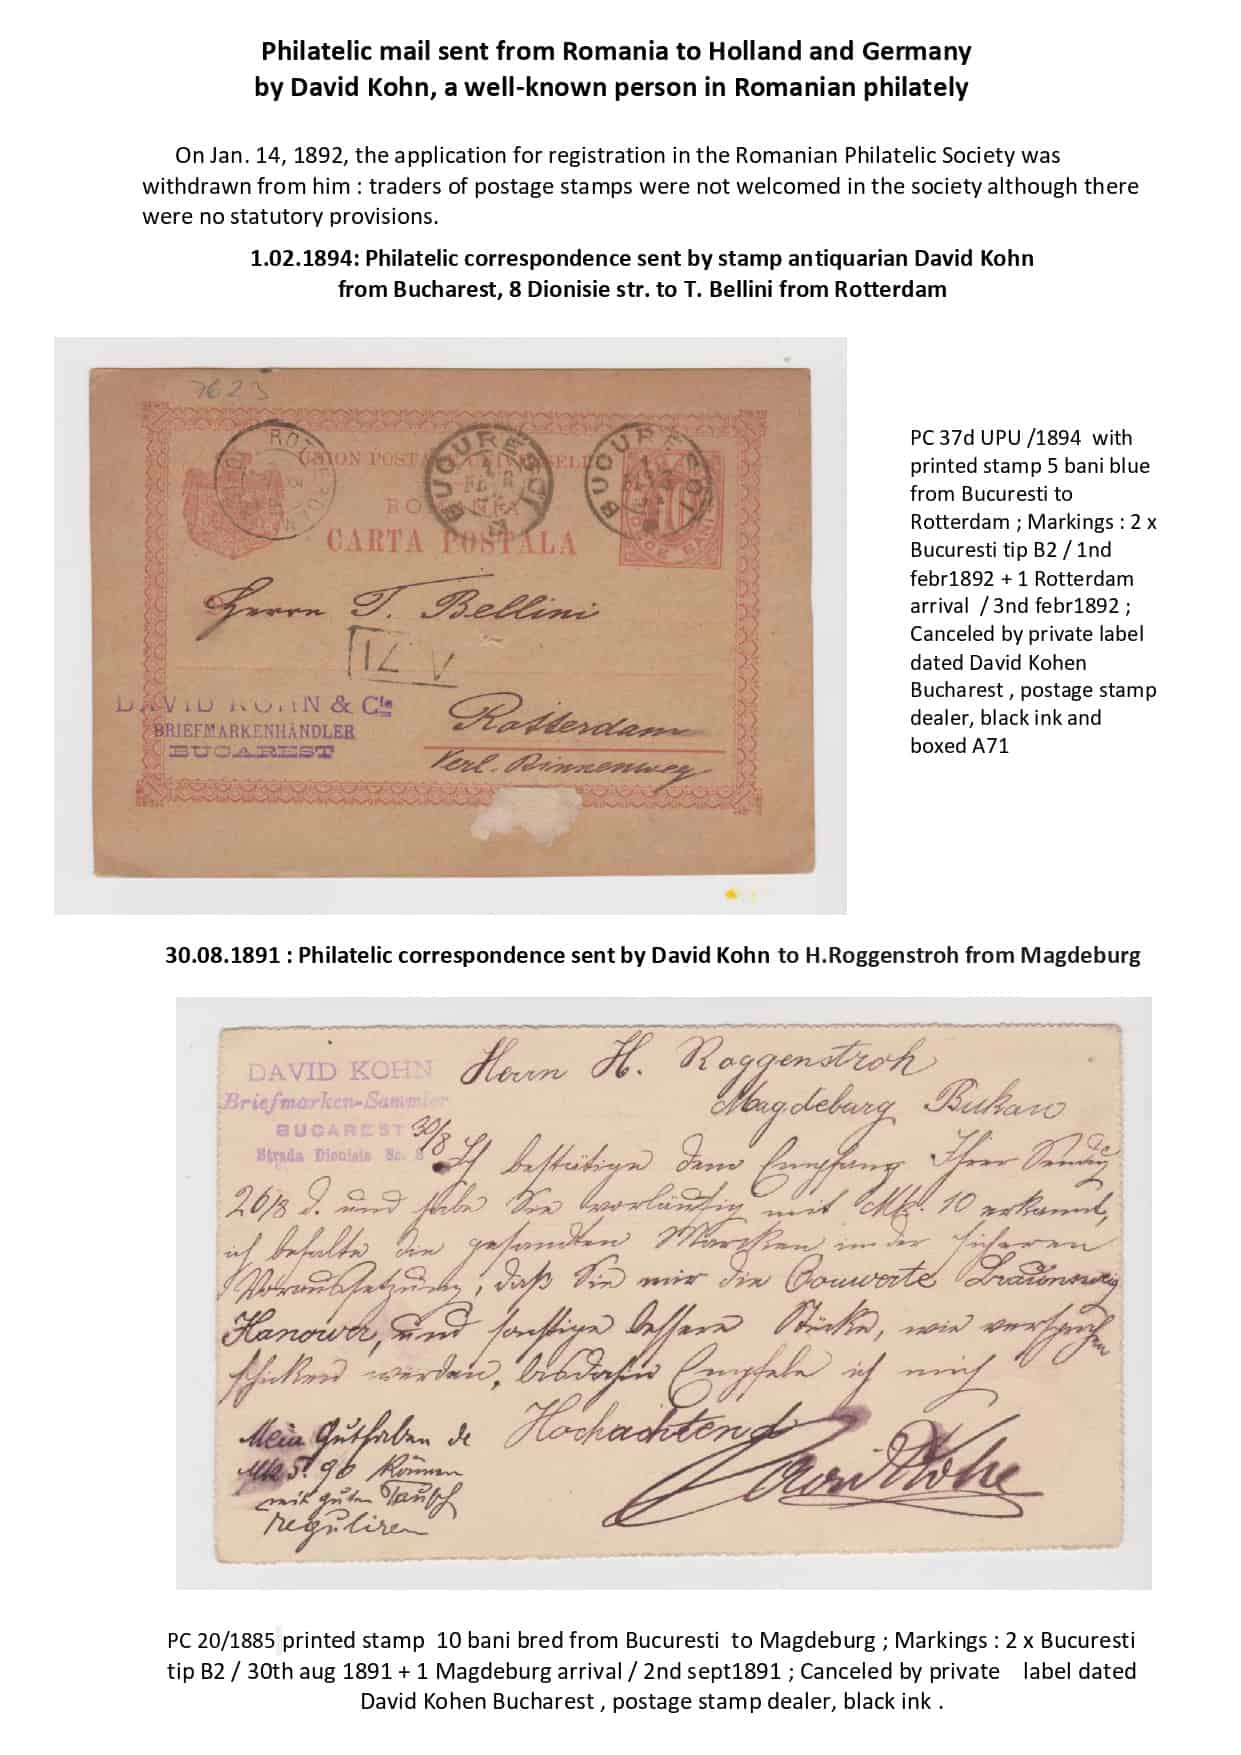 Philatelic mail sent from Romania to Holland and Germany
by David Kohn, a well-known person in Romanian philately
On Jan. 14, 1892, the application for registration in the Romanian Philatelic Society was
withdrawn from him : traders of postage stamps were not welcomed in the society although there
were no statutory provisions.
1.02.1894: Philatelic correspondence sent by stamp antiquarian David Kohn
from Bucharest, 8 Dionisie str. to T. Bellini from Rotterdam
7623
UNION POSTALE UNIVERSELLE
BUCURESCI
BUCURESCI
CARTA POSTALA
Herrn T. Bellini
DAVID KOHN & Cie
BRIEFMARKENHÄNDLER
BUCAREST
Rotterdam
Verl. Binnenweg
PC 37d UPU /1894 with
printed stamp 5 bani blue
from Bucuresti to
Rotterdam ; Markings : 2 x
Bucuresti tip B2 / 1nd
febr1892 + 1 Rotterdam
arrival / 3nd febr1892 ;
Canceled by private label
dated David Kohen
Bucharest , postage stamp
dealer, black ink and
boxed A71
30.08.1891 : Philatelic correspondence sent by David Kohn to H.Roggenstroh from Magdeburg
DAVID KOHN
Briefmarken-Sammler
BUCAREST
Strada Dionisie
30/8
Herrn H. Roggenstroh
Magdeburg Bukau
Ich bestätige den Empfang Ihrer
26/8 d. und habe Sie vorläufig mit Mk. 10 erkannt,
ich behalte die gesandten Marken in der sicheren
Voraussetzung, daß Sie mir die Couverte Braunschweig
Hanower, und sonstige bessere Stücke, wie versprochen
schicken werden, bisdahin Empfele ich mich
Hochachtend
David Kohn
Mein Guthaben de
Mk 5.90 können
mit guten Tausch
reguliren
PC 20/1885 printed stamp 10 bani bred from Bucuresti to Magdeburg ; Markings : 2 x Bucuresti
tip B2 / 30th aug 1891 + 1 Magdeburg arrival / 2nd sept1891 ; Canceled by private label dated
David Kohen Bucharest , postage stamp dealer, black ink .